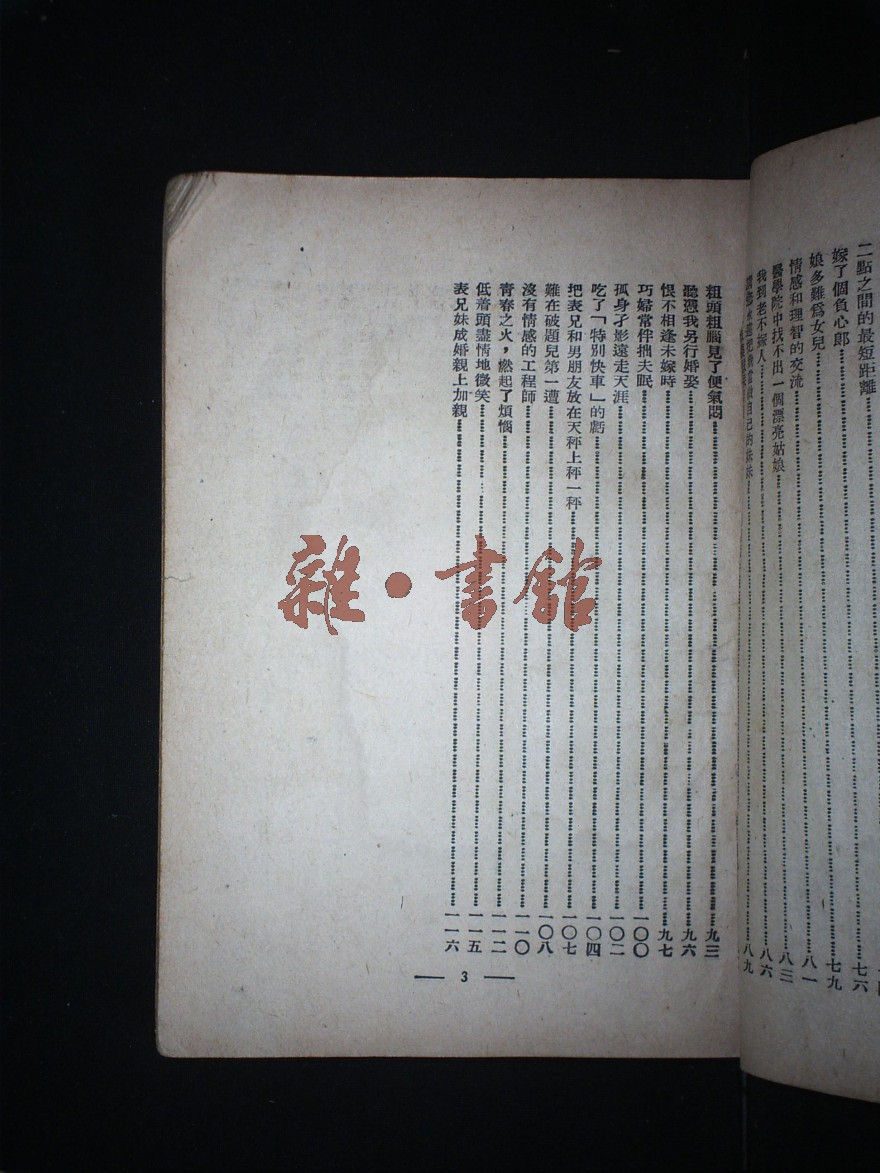 二點之間的最短距離
嫁了個負心郎……七六
娘多難爲女兒……七九
情感和理智的交流……八一
醫學院中找不出一個漂亮姑娘……八三
我到老不嫁人……八六
自己的妹妹……八九
粗頭粗腦見了便氣悶……九三
聽憑我另行婚娶……九六
恨不相逢未嫁時……九七
巧婦常伴拙夫眠……一〇〇
孤身孑影遠走天涯……一〇二
吃了「特別快車」的虧……一〇四
把表兄和男朋友放在天秤上秤一秤……一〇七
難在破題兒第一遭……一〇八
沒有情感的工程師……一一〇
靑春之火，燃起了煩惱……一一二
低着頭盡情地微笑……一一五
表兄妹成婚親上加親……一一六
3
雜·書館